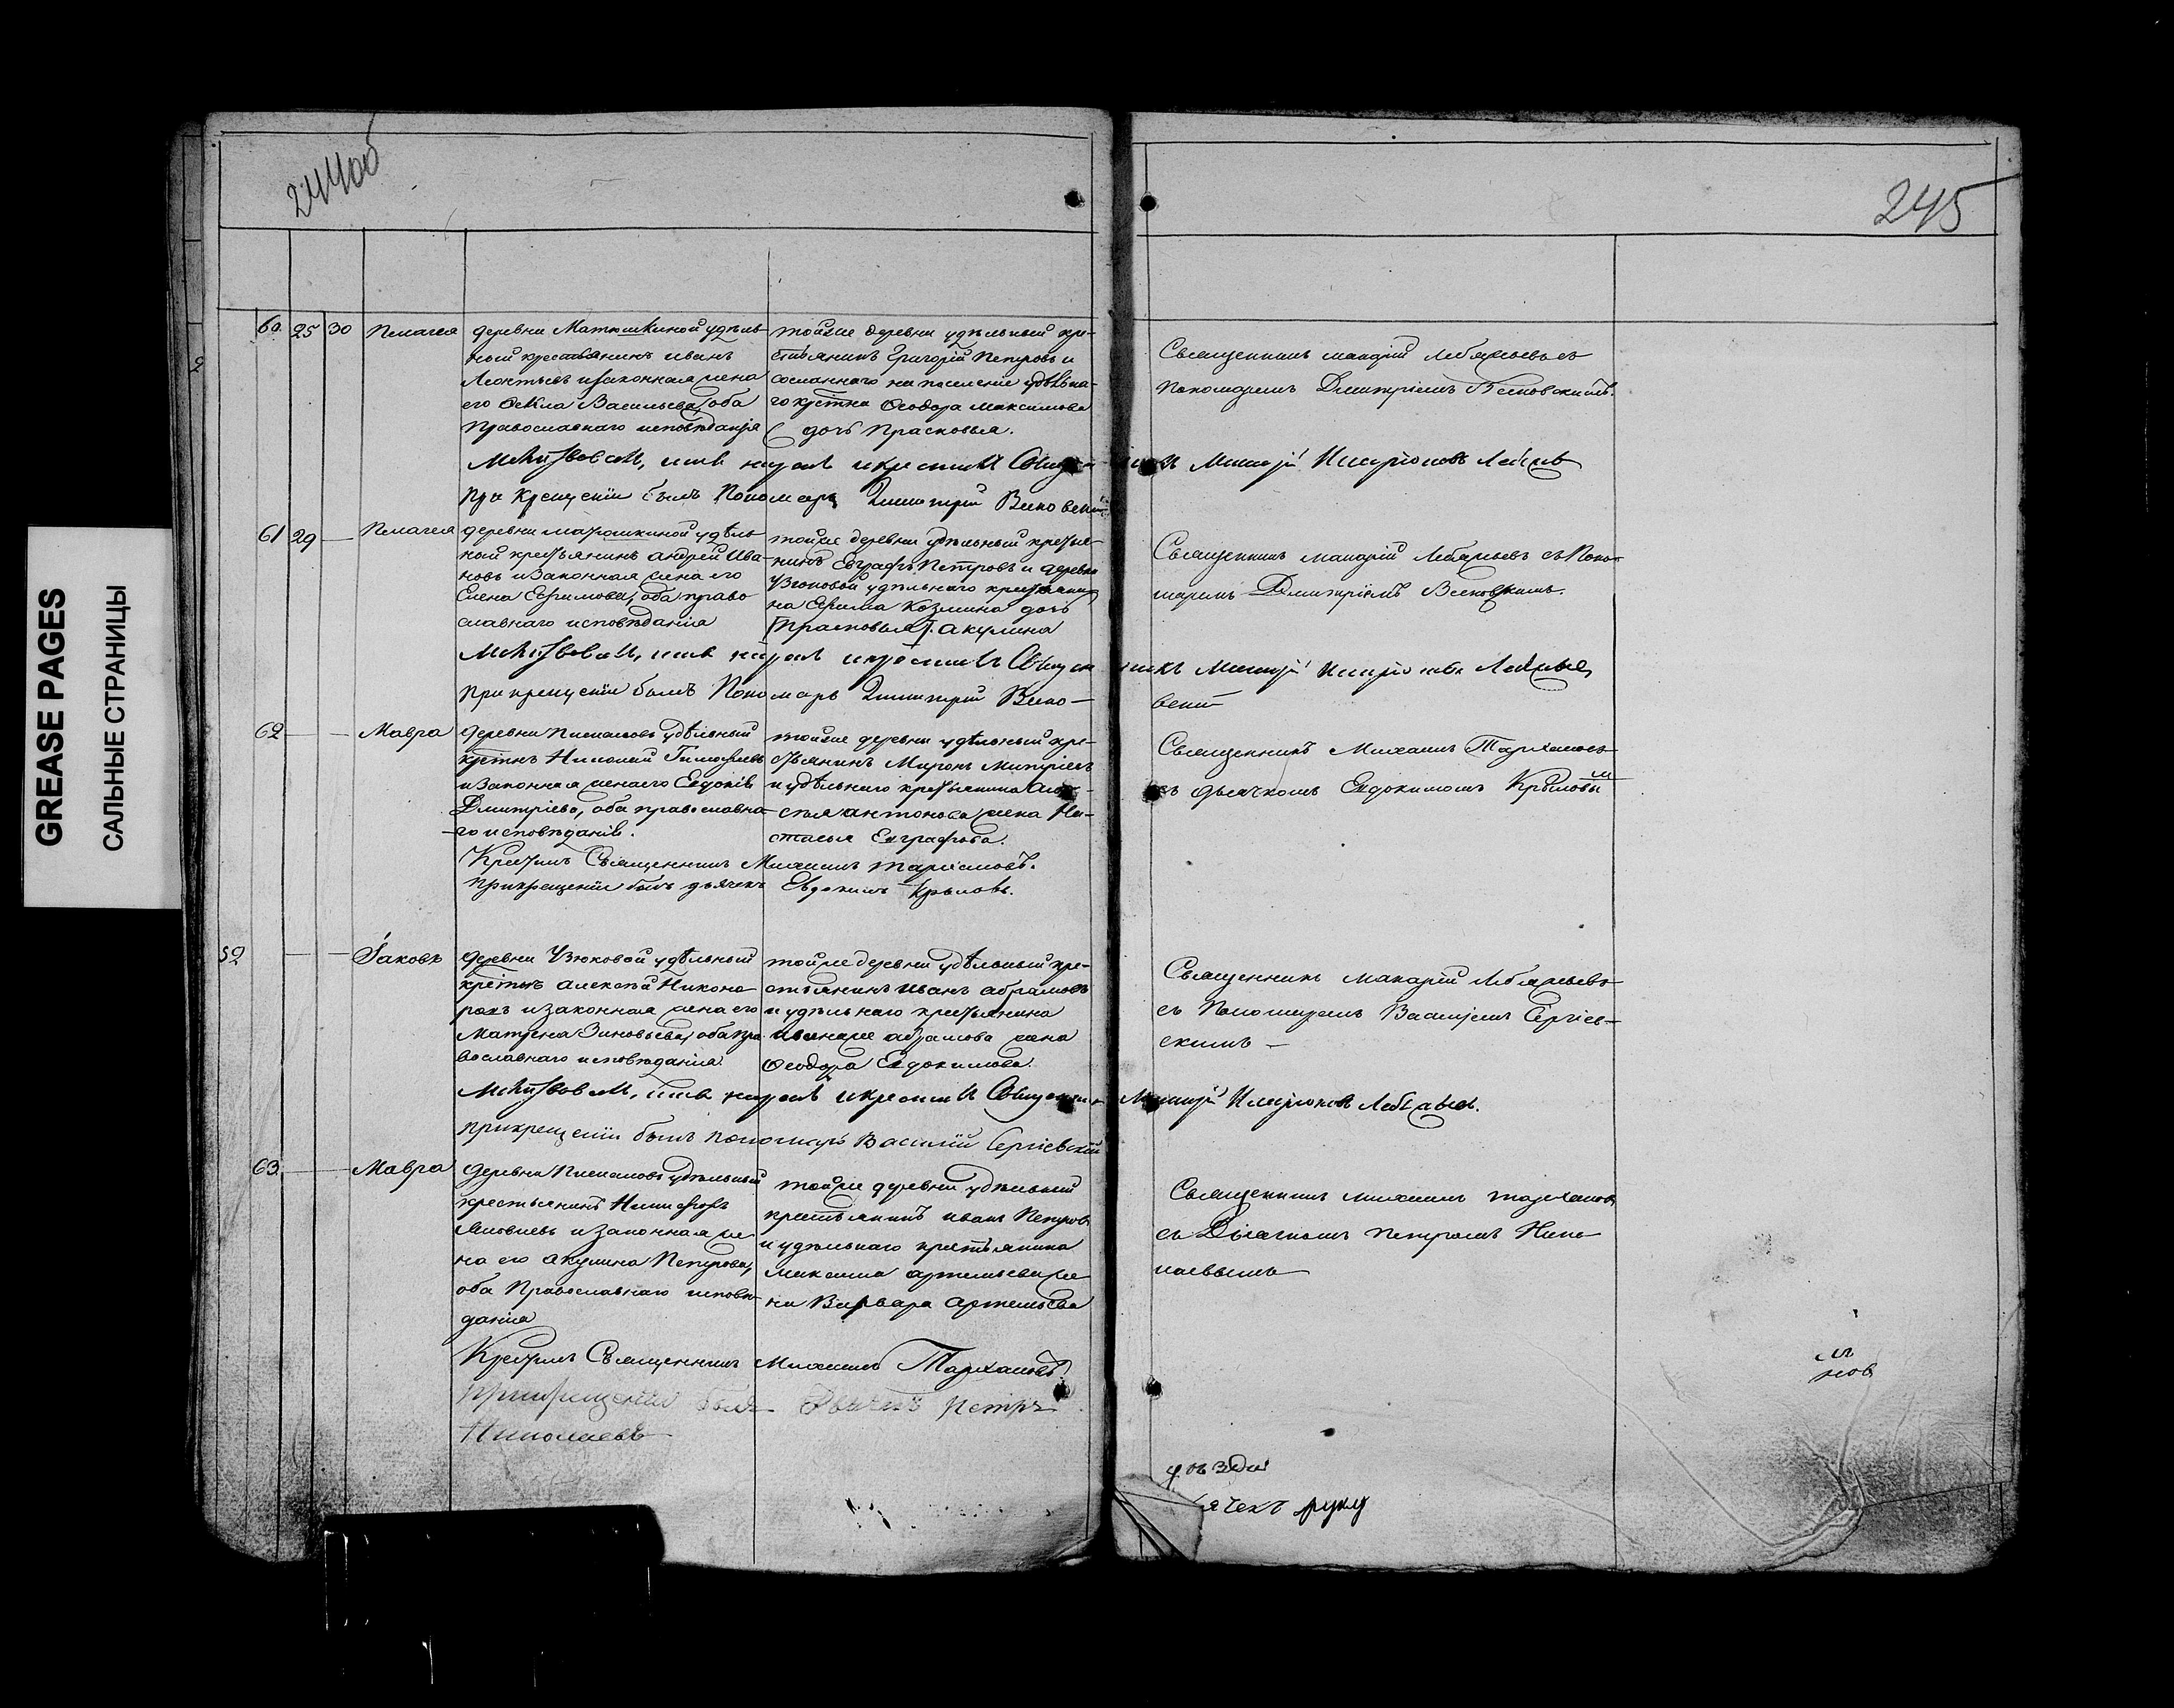 GREASE PAGES
САЛЬНЫЕ СТРАНИЦЫ
244об
245
60. 25 30 Пелагея
деревни Матюшкиной удѣль-
ный крестьянинъ иванъ
Леонтьевъ изаконная жена
его Ѳекла Васильева, оба
Православнаго исповѣданія
тойже деревни удѣльный кре-
стьянинъ Григорій Петровъ и
сосланнаго на поселеніе удѣльна-
го крстна Ѳеодора Максимова
дочь Прасковья.
Священникъ макарій Лебяжьевъ съ
Пономаремъ Дмитріемъ
Молитвовалъ, имя нарекъ икрестилъ Священникъ
при Крещеніи былъ Пономарь Димитрій
61 29 — Пелагея
деревни матюшкиной удѣль
ный крестьянинъ андрей Ива-
новъ изаконная жена его
Елена Ефимова, оба право
славнаго исповѣданія
тойже деревни удѣльный крестья-
нинъ Евграфъ Петровъ и деревни
Узюковой удѣльнаго крестьяни
на Ефима Козмина дочь
[Прасковья]. акулина
Священникъ макарій Лебяжьевъ съ Поно-
маремъ Дмитріемъ
Молитвовалъ, имя нарекъ икрестилъ Священникъ
при крещеніи былъ Пономарь Димитрій
62 — — Мавра
деревни удѣльный
крстнъ Николай Тимофѣевъ
изаконная женаего Евдокія
Дмитріева, оба православна
го исповѣданія.
тойже деревни удѣльный кре-
стьянинъ Миронъ Митріевъ
и удѣльнаго крестьянина
антонова жена На-
стасья Евграфова.
Священникъ Михаилъ Тарханов
съ дьячкомъ Евдокимомъ Крыловым
Крестилъ Священникъ Михаилъ Тархановъ.
прикрещеніи былъ дьячекъ Евдокимъ Крыловъ.
52 — — Іаковъ
деревни Узюковой удѣльный
крстнъ алексѣй Никоно
ровъ изаконная жена его
Матрена Зиновьева, оба пра
вославнаго исповѣданія.
тойже деревни удѣльный кре-
стьянинъ иванъ абрамовъ
и удѣльнаго крестьянина
абрамова жена
Ѳеодора Евдокимова.
Священникъ макарій Лебяжьевъ
съ Пономаремъ Василіемъ Сергіев-
скимъ —
Молитвовалъ, имя нарекъ икрестилъ Священникъ
прикрещеніи былъ пономарь Василій Сергіевскій
63. — — Мавра
деревни удѣльный
крестьянинъ Никифоръ
Яковлевъ и законная же
на его акулина Петрова,
оба Православнаго исповѣ-
данія
тойже деревни удѣльный
крестьянинъ иванъ Петров
и удѣльнаго крестьянина
Максима артемьева же
на Варвара артемьева
Священникъ михаилъ тарханов
съ Дьячкомъ Петромъ Нико
лаевымъ
Крестилъ Священникъ Михаилъ Тархановъ.
прикрещеніи былъ Дьячекъ Петръ
Николаевъ
ячекъ руку
нов